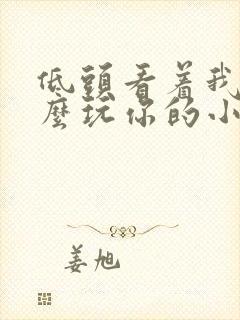 低頭看着我
麼玩你的小
姜旭